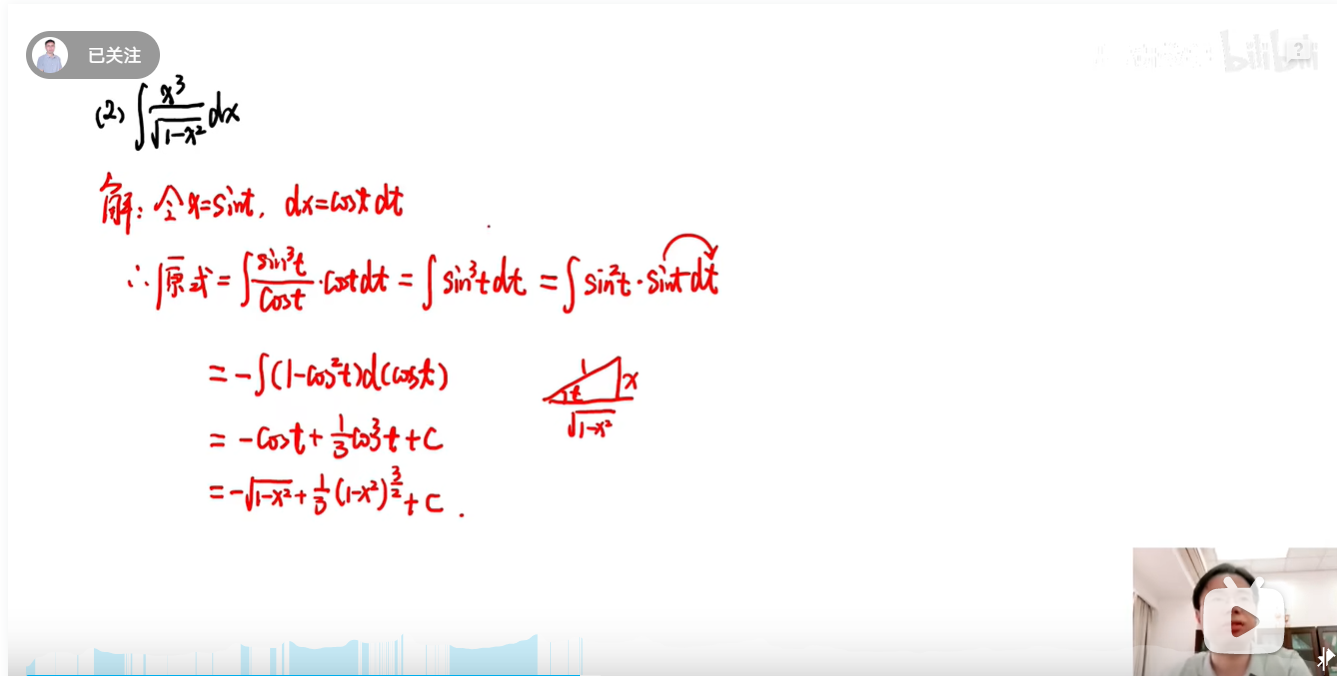 已关注
bilibili
?
(2) ∫ x³/√(1-x²) dx
解: 令x=sint, dx=costdt
∴ 原式 = ∫ sin³t/cost · costdt = ∫ sin³t dt = ∫ sin²t · sint dt
= -∫(1-cos²t)d(cost)
1
t
x
√(1-x²)
= -cost + 1/3 cos³t + C
= -√(1-x²) + 1/3 (1-x²)^(3/2) + C .